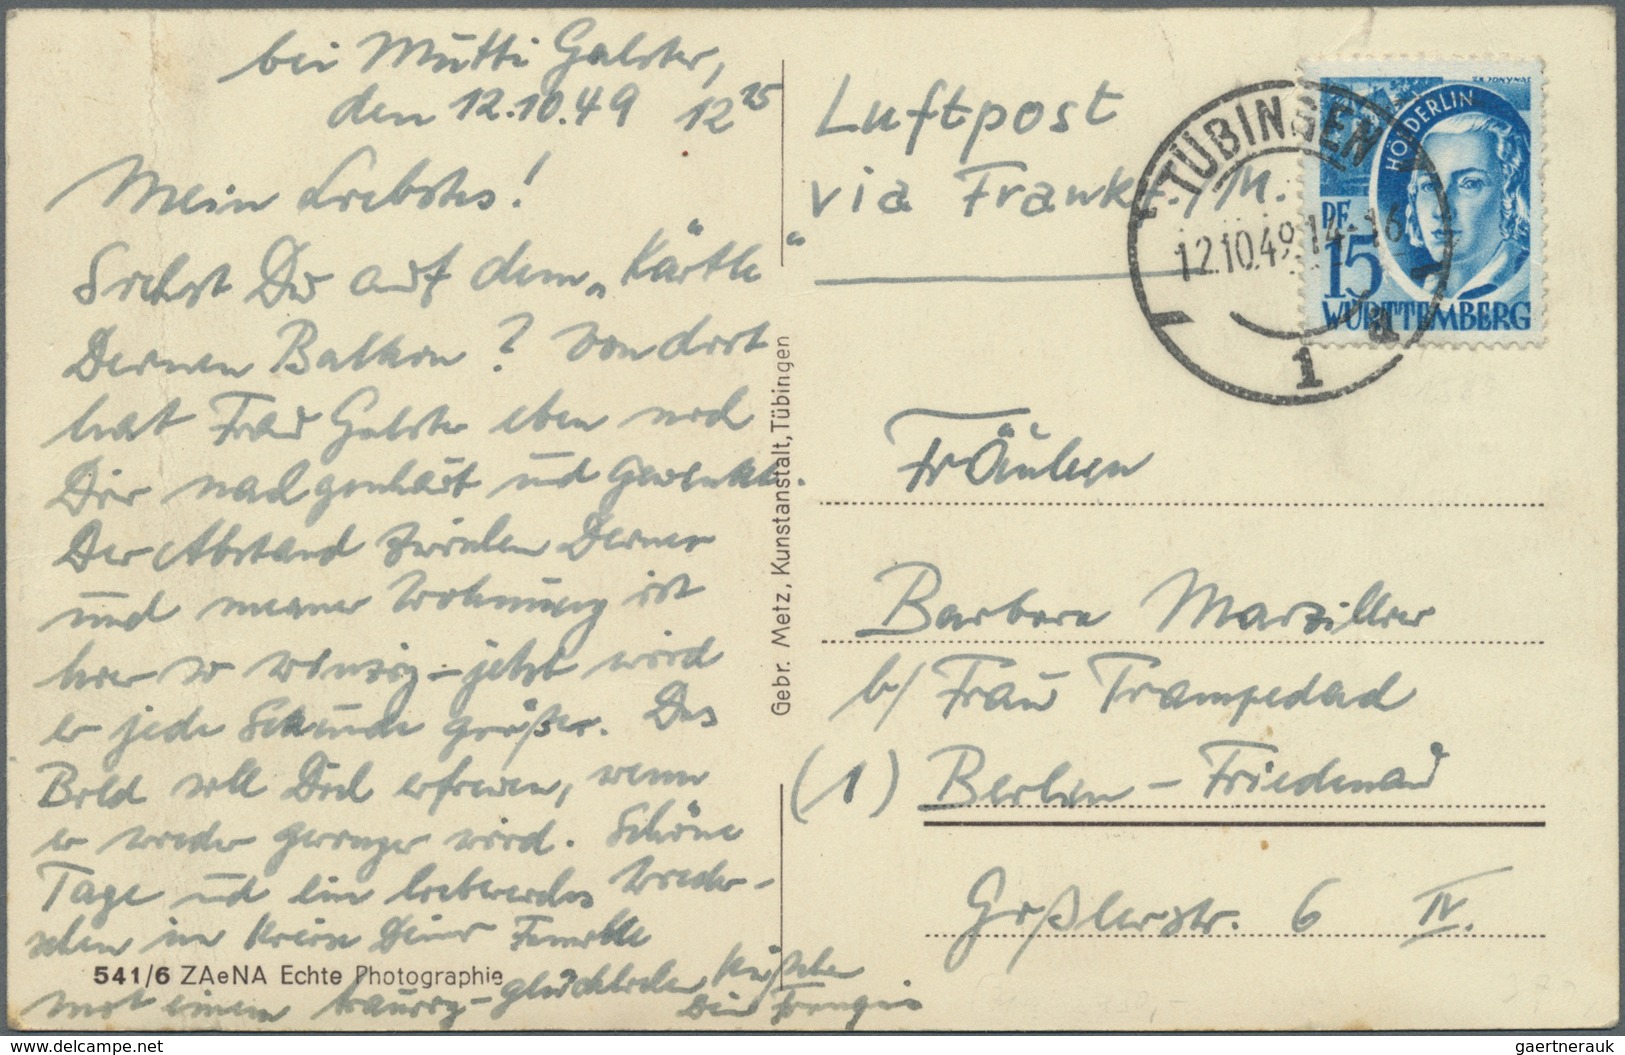 bei Mutti Galster,
den 12.10.49 12 25
Mein Liebstes!
Siehst Du auf dem „Kärtle“
Deinen Balkon? Von dort
hat Frau Galster eben noch
Dir nachgeschaut und gewinkt.
Der Abstand zwischen Deiner
und meiner Wohnung ist
hier so winzig – jetzt wird
er jede Sekunde größer. Das
Bild soll Dich erfreuen, wenn
er wieder geringer wird. Schöne
Tage und ein liebwerdes Wieder-
sehen im Kreise Deiner Familie
mit einem traurig-glücklichen Küßchen
Dein
541/6 ZAeNA Echte Photographie
Gebr. Metz, Kunstanstalt, Tübingen
Luftpost
via Frankf./M.
TÜBINGEN
12.10.49.14-16
1
a
HÖLDERLIN
PF.
15
WÜRTTEMBERG
Fräulein
Barbara Marziller
b/ Frau Trampedach
(1) Berlin – Friedenau
Goßlerstr. 6 IV.
www.delcampe.net
gaertnerauk